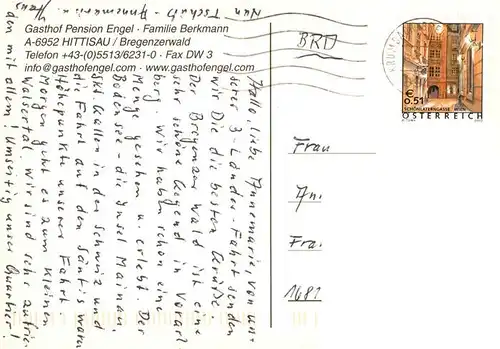 Gasthof Pension Engel · Familie Berkmann
A-6952 HITTISAU / Bregenzerwald
Telefon +43-(0)5513/6231-0 · Fax DW 3
info@gasthofengel.com · www.gasthofengel.com
Hallo, liebe Annemarie, von un-
serer 3-Länder-Fahrt senden
wir Dir die besten Grüße.
Der Bregenzer Wald ist eine
sehr schöne Gegend in Vorarl-
berg. Wir haben schon eine
Menge gesehen u. erlebt. Der
Bodensee - die Insel Mainau,
St. Gallen in der Schweiz und
die Fahrt auf den Säntis waren
Höhepunkte unserer Fahrt.
Morgen geht es zum kleinen
Walsertal. Wir sind sehr zufrie-
den mit allem! Umseitig unser Quartier!
Nun Tschüß - Annemarie u.
BRD
Frau
An.
Fra.
1681
€
0.51
SCHÖNLATERNGASSE WIEN
ÖSTERREICH